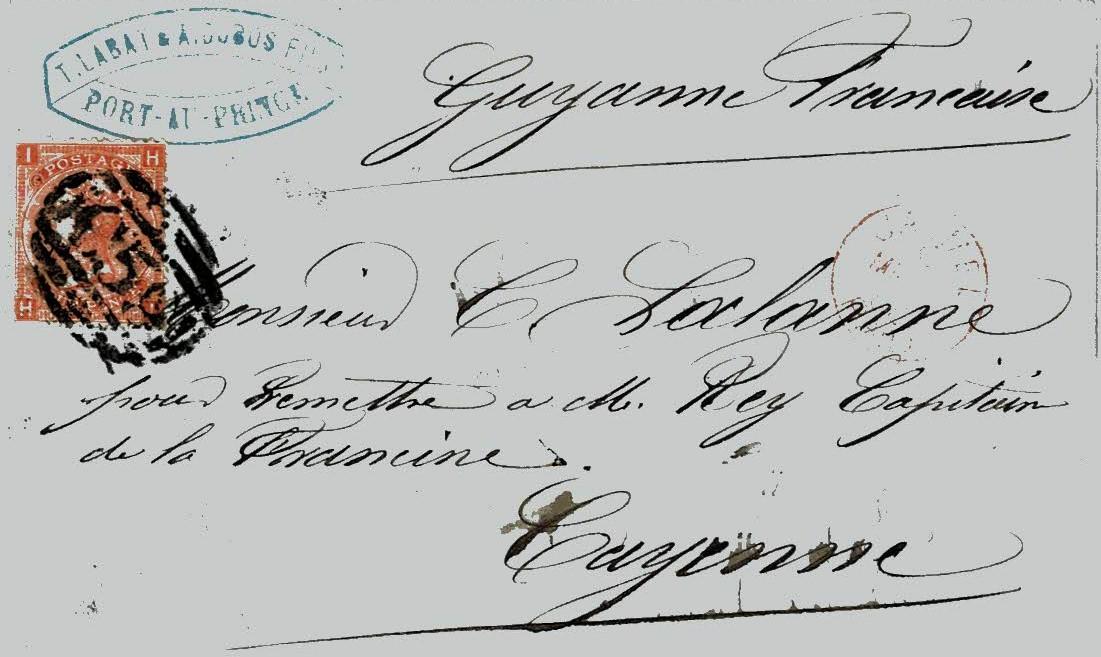 T. LABAT & A. DUBOS FILS
PORT-AU-PRINCE
Guyanne Francaise
I H
POSTAGE
H
Monsieur C. Lalanne
pour Remettre a M. Rey Capitain
de la Francine.
Cayenne